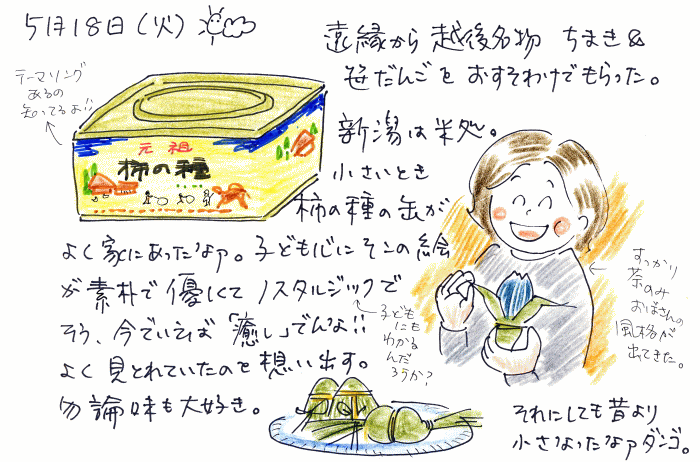 5月18日(火)
遠縁から 越後名物 ちまき&
笹だんごを おすそわけでもらった。
テーマソング
あるの
知ってるよ!!
元祖
柿の種
新潟は米処。
小さいとき
柿の種の缶が
よく家にあったなァ。子ども心にそこの絵
が素朴で優しくてノスタルジックで
そう、今でいえば「癒し」でんよ!!
よく見とれていたのを想い出す。
勿論味も大好き。
子ども
にも
わかる
んだ
ろうか?
すっかり
茶のみ
おばさんの
風格が
出てきた。
それにしても昔より
小さなったなァダンゴ。